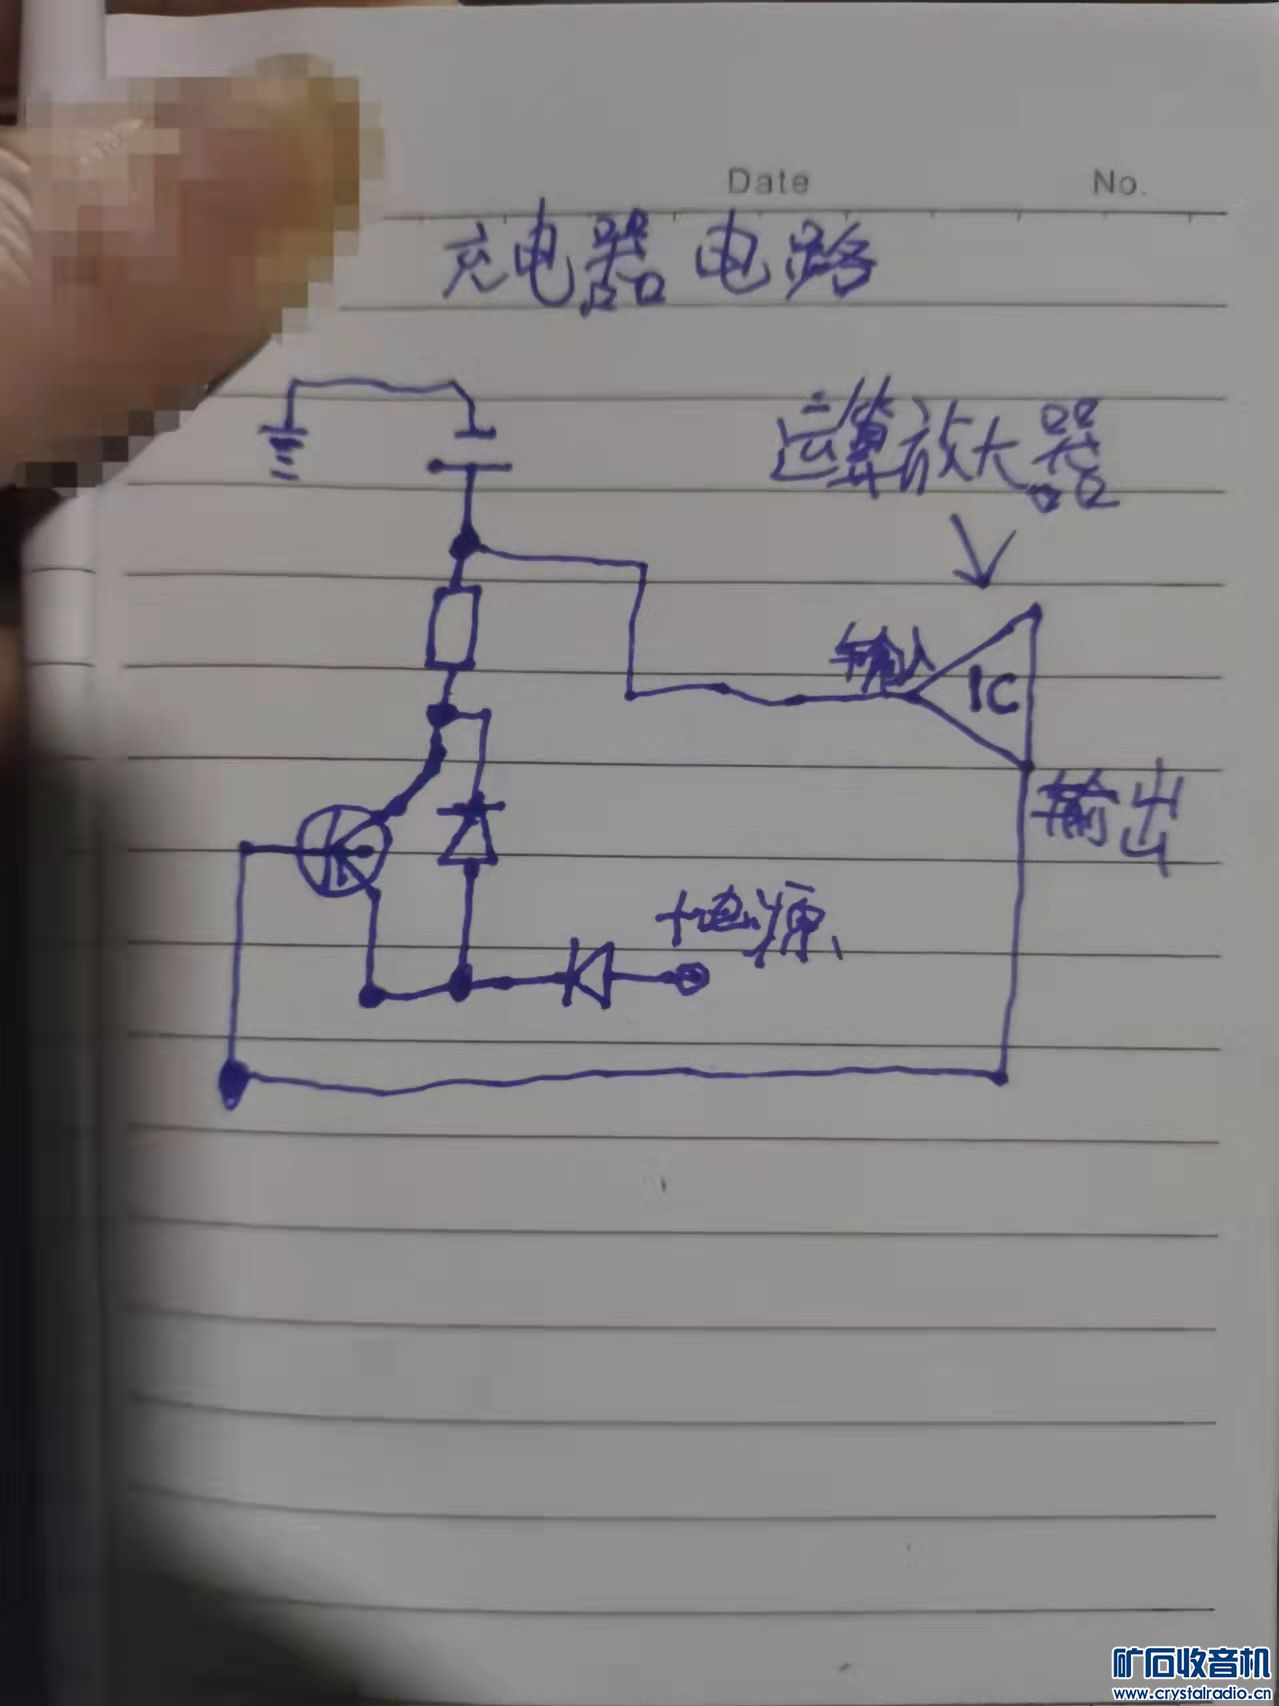 Date No.
充电器 电路
运算放大器
输入
IC
输出
+电源
矿石收音机
www.crystalradio.cn